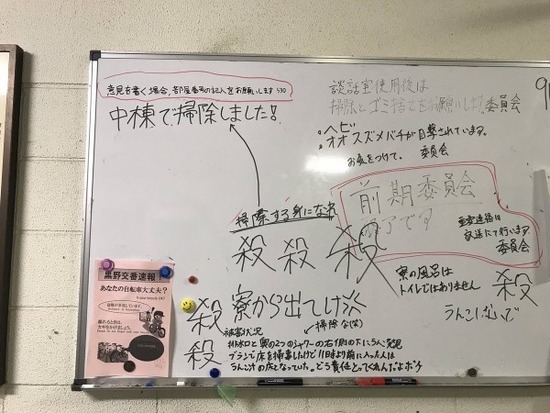 意見を書く場合、部屋番号の記入をお願いします 530
中棟で掃除しました!
談話室使用後は
掃除とゴミ捨てをお願いします 委員会
ヘビ
オオスズメバチが目撃されています。
お気をつけて。 委員会
前期委員会
終了です
重要連絡は
放送にて行います
委員会
掃除する身になれ
殺 殺 殺
寮の風呂は
トイレではありません 殺
うんこ
殺 寮から出てけ
殺
掃除
被害状況
排水口と奥の2つのシャワーの右側の下にうんこ発見
ブラシで床を掃事したけど 11日時より前に入った人は
うんこ汁の床となっていた。どう責任とってくれんだよボケ
黒野交番速報!
あなたの自転車大丈夫?